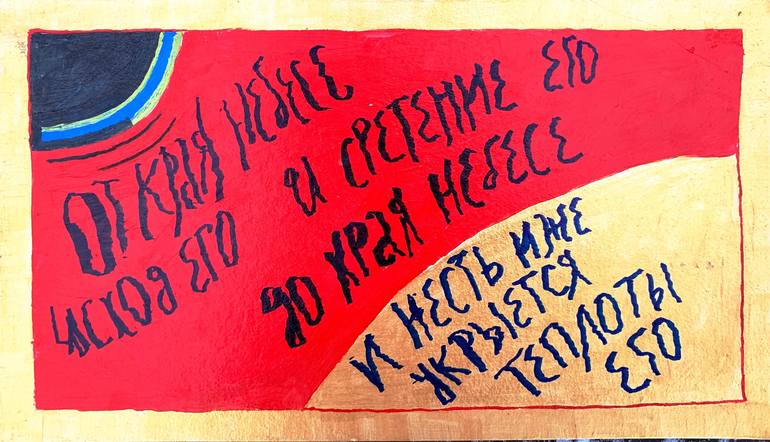 ОТ КРАЯ НЕБЕСЕ
ИСХОД ЕГО
И СРЕТЕНИЕ ЕГО
ДО КРАЯ НЕБЕСЕ
И НЕСТЬ ИЖЕ
УКРЫЕТСЯ
ТЕПЛОТЫ
ЕГО